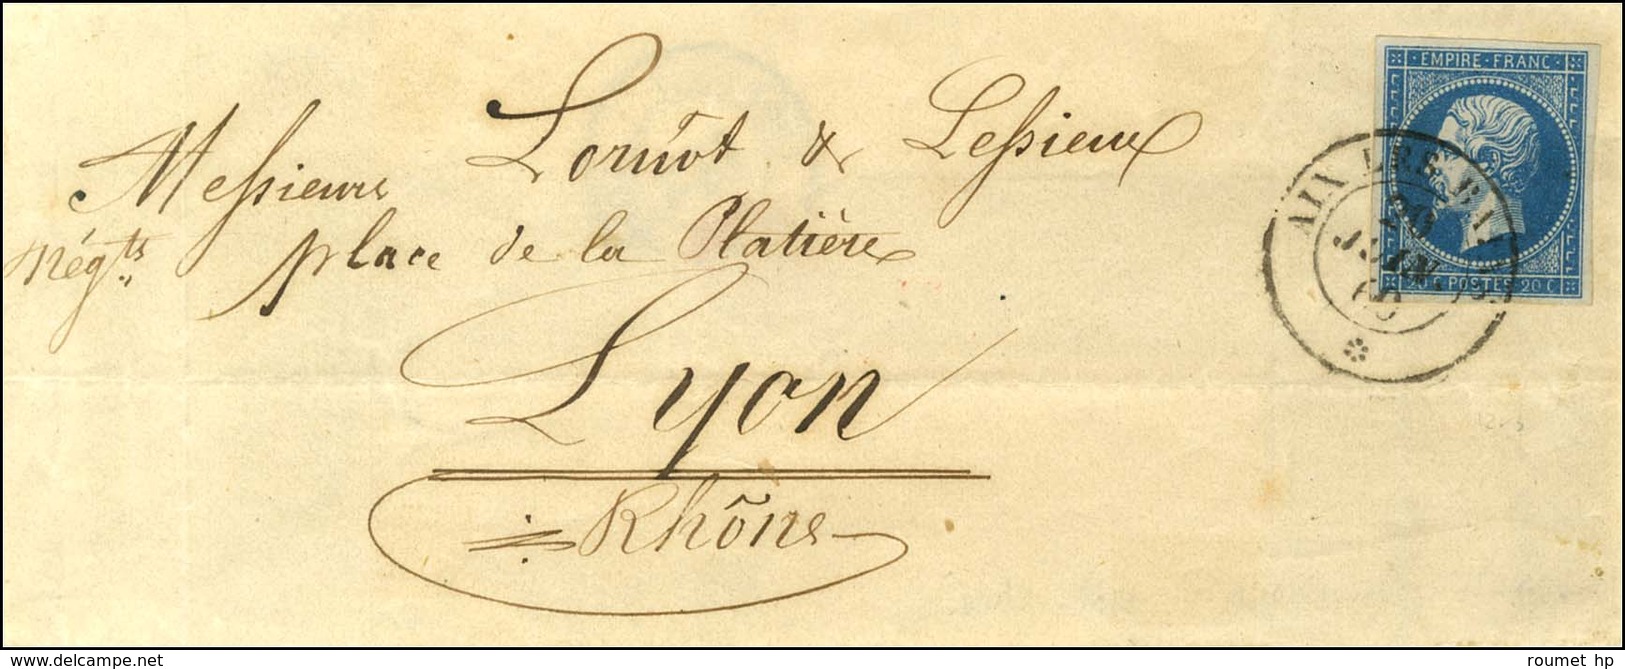 EMPIRE · FRANC ·
Messieurs Lornot & Lessieux
Négts place de la Platière
Lyon
Rhône
AIX LES BAINS
20
JUIN
60
20 C POSTES 20 C
www.delcampe.net
roumet hp